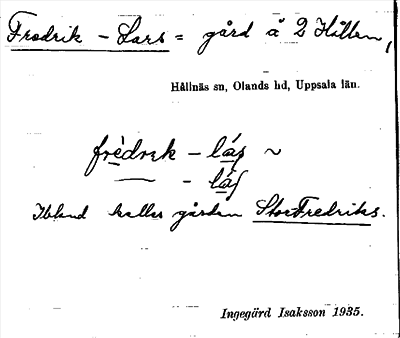 Fredrik - Lars = gård å 2 Hållen,
Hållnäs sn, Olands hd, Uppsala län.
frèdrɩk - lás ~
— - lás
Ibland kallas gården StorFredriks.
Ingegärd Isaksson 1935.